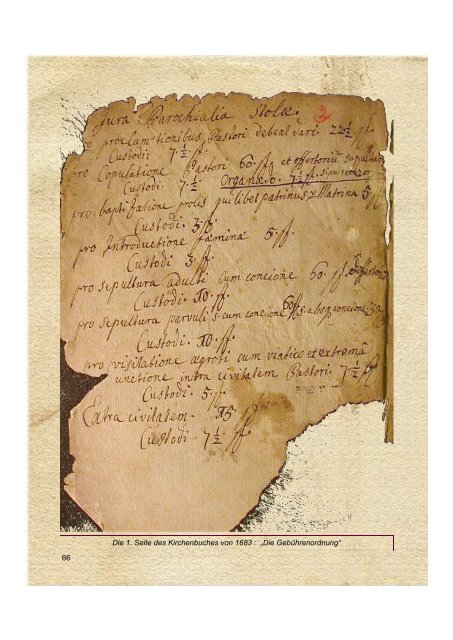 Jura Parochialia Stolæ.
pro proclamationibus Pastori debent dari. 22½ ff.
Custodi: 7½ ff.
pro Copulatione Pastori 60. ff et offertoriū
Custodi. 7½. Organœdo. 7½ ff.
pro baptisatione prolis quilibet patrinus & Matrina 5
Custodi. 3 ff.
pro Introductione fæminæ 5. ff.
Custodi 3. ff.
pro sepultura adulti cum concione 60. ff
Custodi. 10. ff.
pro sepultura parvuli s. cum concione 60 ff s. absq concione 30
Custodi. 10. ff.
pro visitatione ægroti cum viatico et extremâ
unctione intra civitatem Pastori. 7½ ff
Custodi. 5. ff
Extra civitatem. 15 ff.
Custodi 7½ ff
Die 1. Seite des Kirchenbuches von 1683 : „Die Gebührenordnung“
66